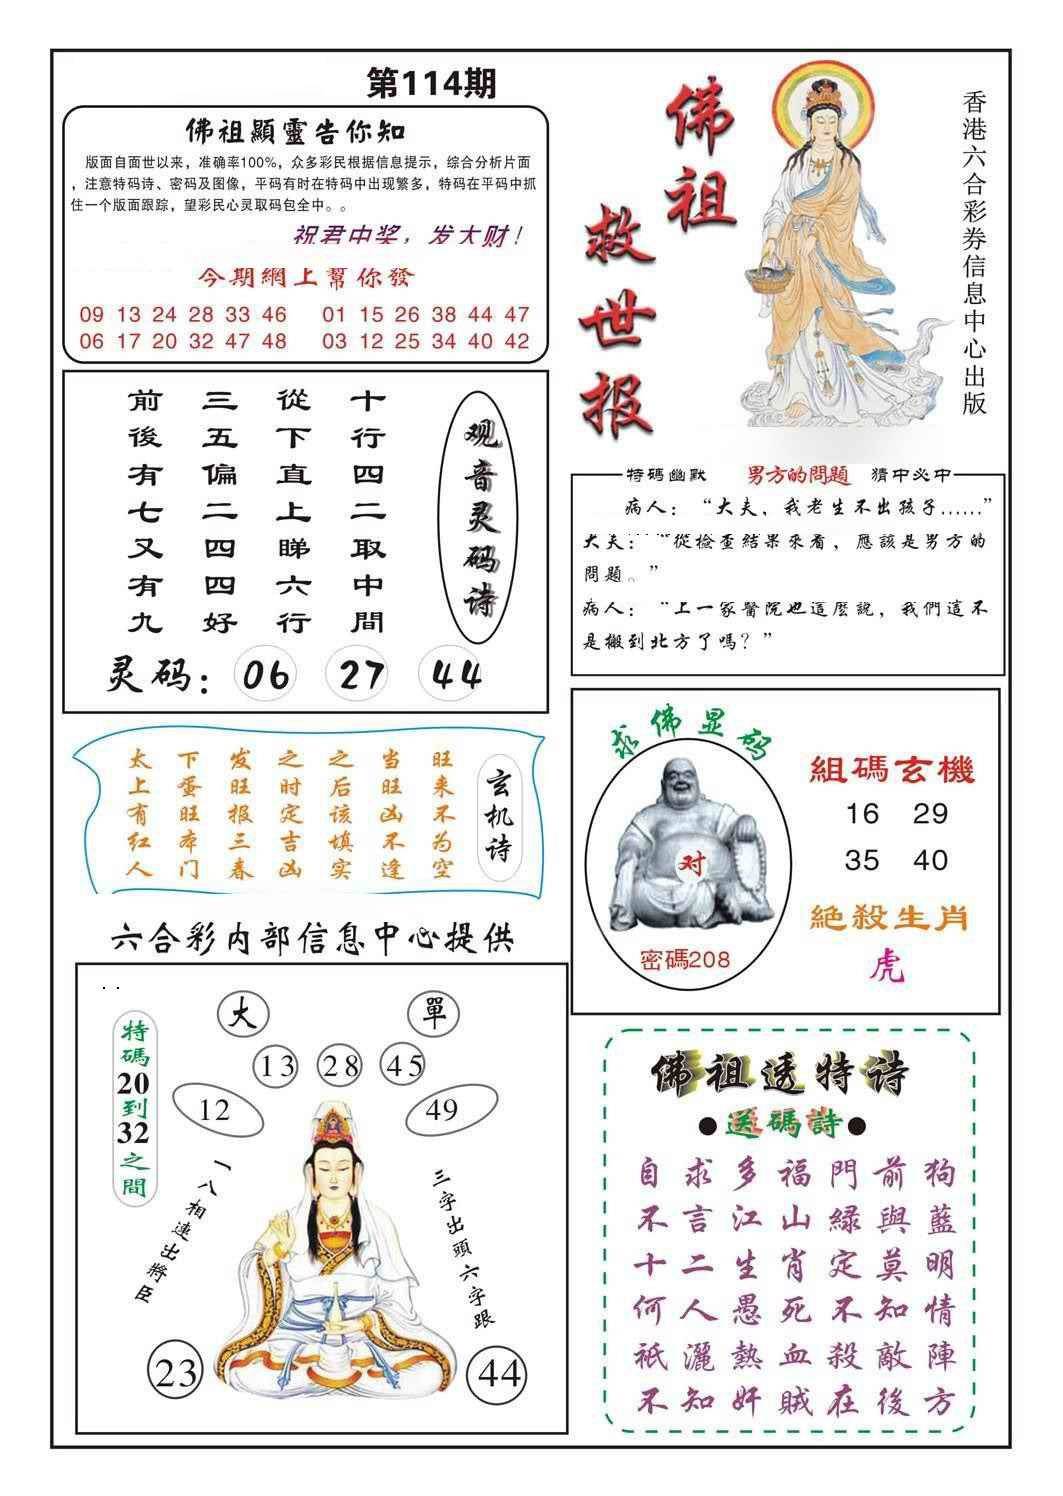 第114期
佛祖顯靈告你知
版面自面世以来，准确率100%，众多彩民根据信息提示，综合分析片面
，注意特码诗、密码及图像，平码有时在特码中出现繁多，特码在平码中抓
住一个版面跟踪，望彩民心灵取码包全中。。
祝君中奖，发大财！
今期網上幫你發
09 13 24 28 33 46 01 15 26 38 44 47
06 17 20 32 47 48 03 12 25 34 40 42
佛祖
救世报
香港六合彩券信息中心出版
十行四二取中間
從下直上睇六行
三五偏二四四好
前後有七又有九
观音灵码诗
灵码：06 27 44
特碼幽默 男方的問題 猜中必中
病人：“大夫，我老生不出孩子……”
大夫：“從檢查結果來看，應該是男方的
問題。”
病人：“上一家醫院也這麼說，我們這不
是搬到北方了嗎？”
玄机诗
旺来不为空
当旺凶不逢
之后该填实
之时定吉凶
发旺报三春
下蛋旺本门
太上有红人
求佛显码
对
密碼208
組碼玄機
16 29
35 40
絕殺生肖
虎
六合彩内部信息中心提供
特碼20到32之間
大 單
13 28 45
12 49
一八相連出將臣
三字出頭六字跟
23 44
佛祖透特诗
●送碼詩●
自求多福門前狗
不言江山綠與藍
十二生肖定莫明
何人愚死不知情
祇灑熱血殺敵陣
不知奸賊在後方